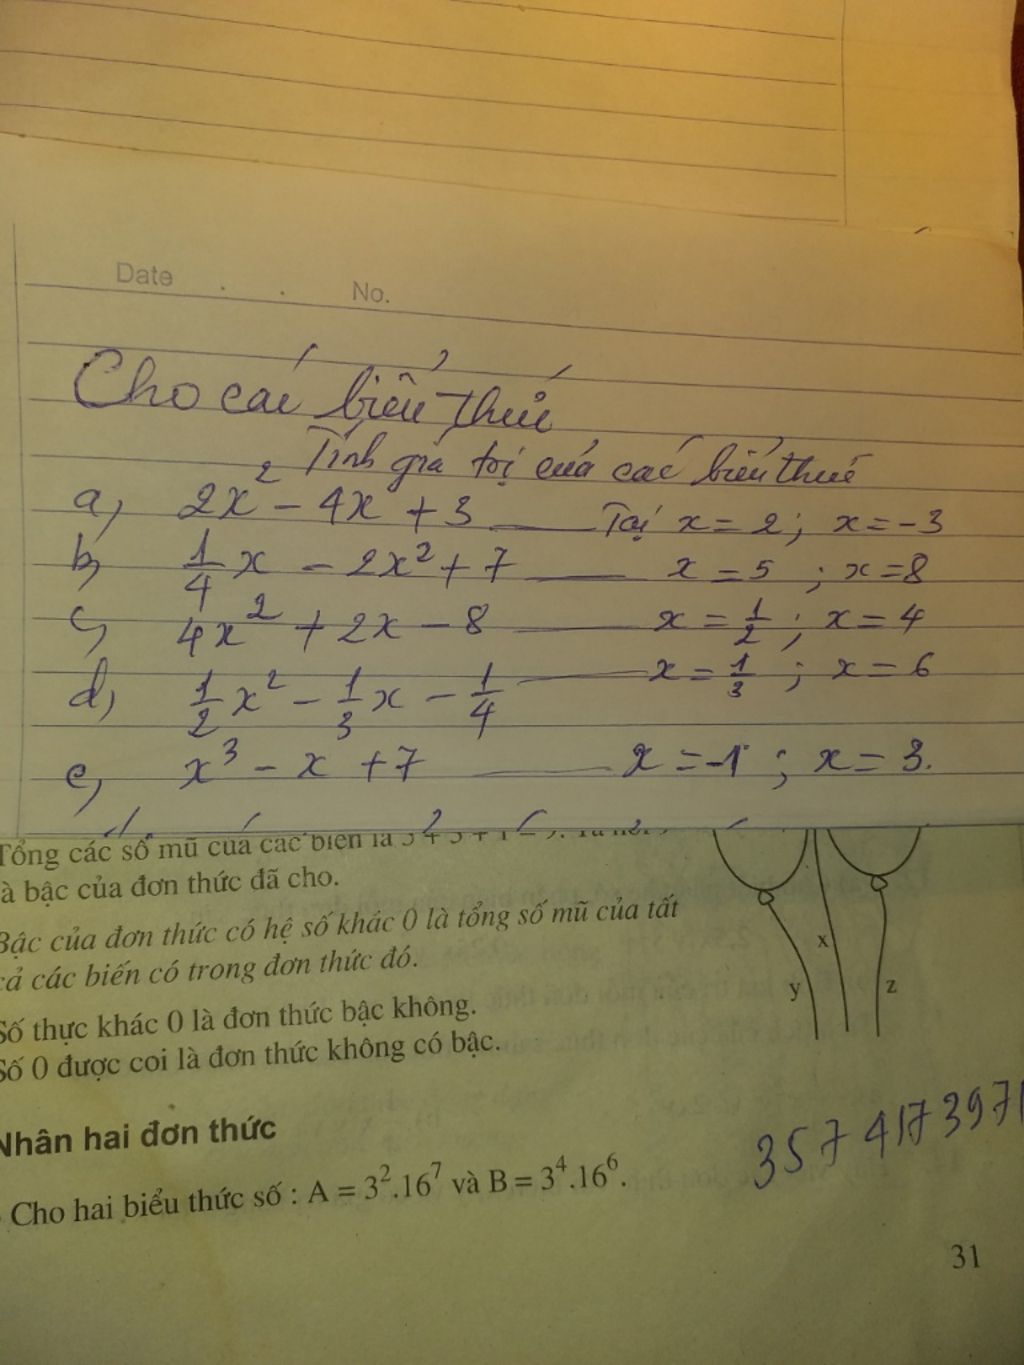 Date . . No.
Cho các biểu thức
Tính giá trị của các biểu thức
a) 2x² - 4x + 3 — Tại x = 2 ; x = -3
b) 1/4 x - 2x² + 7 — x = 5 ; x = 8
c) 4x² + 2x - 8 — x = 1/2 ; x = 4
d) 1/2 x² - 1/3 x - 1/4 — x = 1/3 ; x = 6
e) x³ - x + 7 — x = -1 ; x = 3.
Tổng các số mũ của các biến là
à bậc của đơn thức đã cho.
Bậc của đơn thức có hệ số khác 0 là tổng số mũ của tất
cả các biến có trong đơn thức đó.
Số thực khác 0 là đơn thức bậc không.
Số 0 được coi là đơn thức không có bậc.
x
y
z
Nhân hai đơn thức
357 417 3971
Cho hai biểu thức số : A = 3².16⁷ và B = 3⁴.16⁶.
31